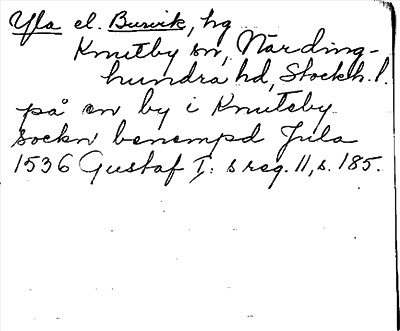 Yla el. Burvik, hg
Knutby sn, Närding-
hundra hd, Stockh. l.
på en by i Knutsby
sockn benempd Jula
1536 Gustaf I:s reg. 11, s. 185.